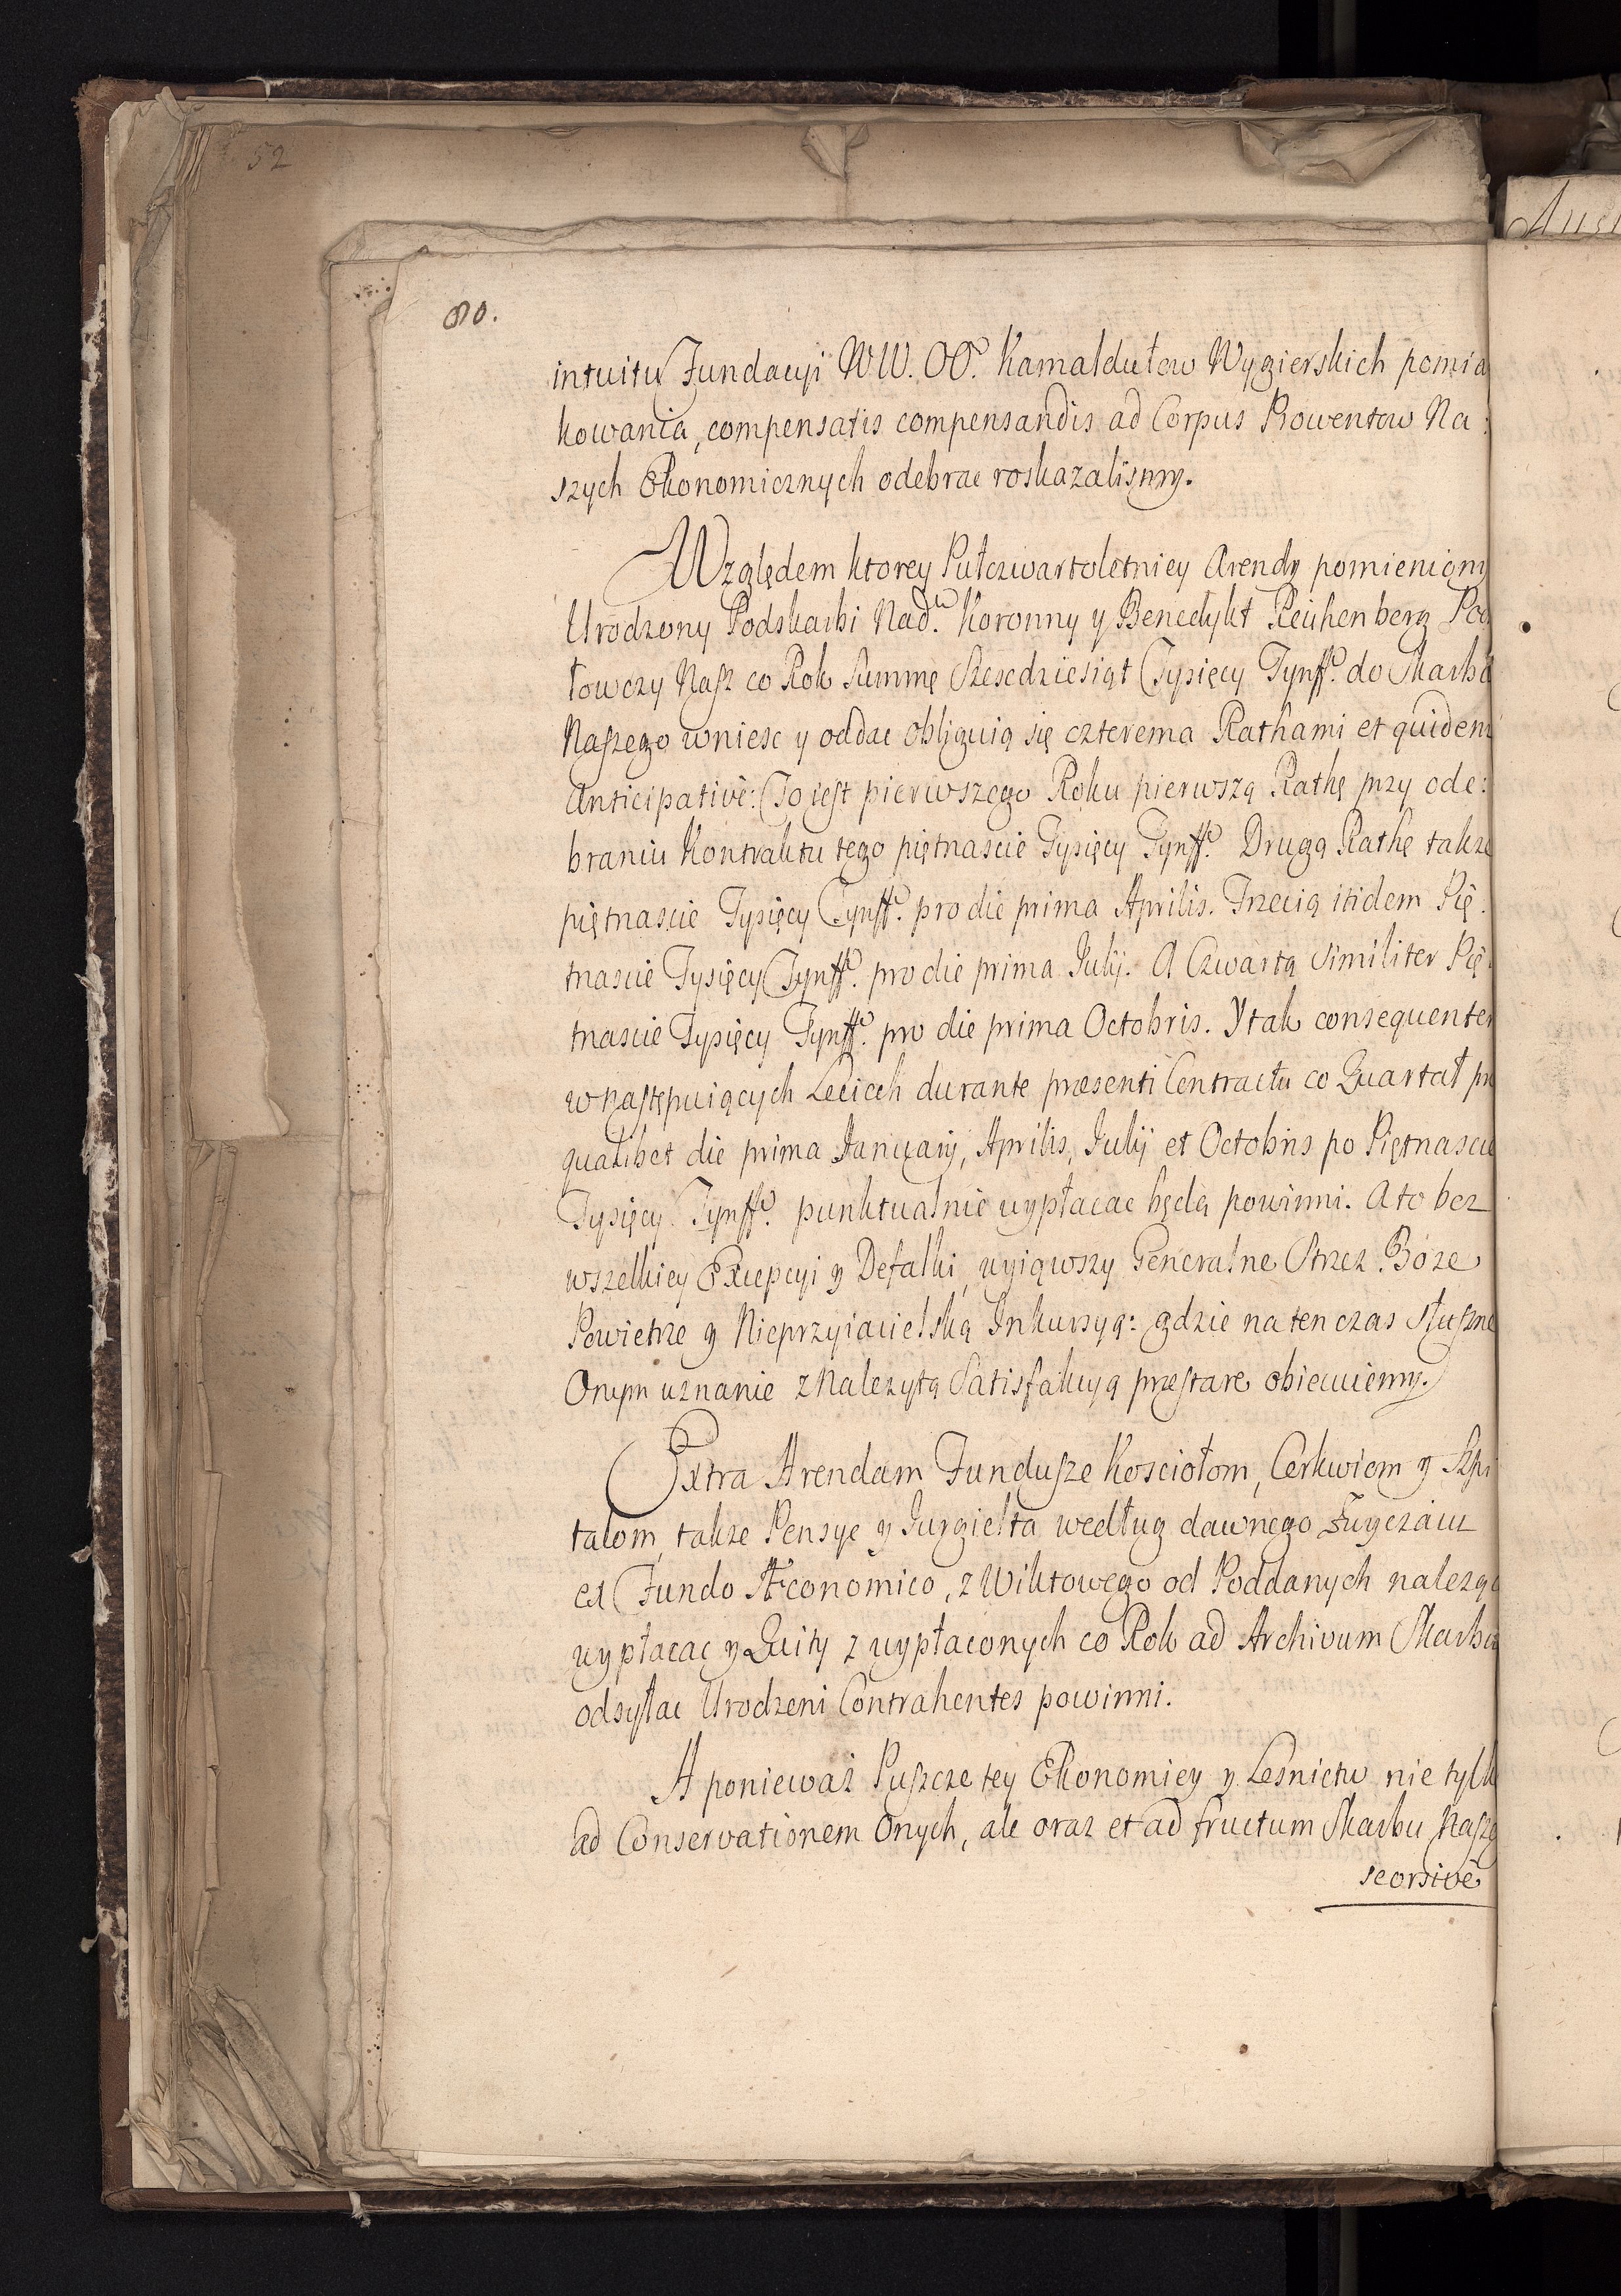 52
80.
intuitu Fundacyi WW. OO. Kamaldułow Wygierskich pomia
kowania, compensatis compensandis ad Corpus Prowentow Na:
szych Ekonomicznych odebrac roskazalismy.
Względem ktorey Pułczwartoletniey Arendy pomieniony
Urodzony Podskarbi Nad. Koronny y Benedykt Reichenberg Pod
łowczy Nasz co Rok Summę Szescdziesiąt Tysięcy Tynff. do Skarbu
Naszego wniesc y oddac obliguią się czterema Rathami et quidem
Anticipativè: To iest pierwszego Roku pierwszą Rathę przy ode:
braniu Kontraktu tego piętnascie Tysięcy Tynff. Drugą Rathę także
piętnascie Tysięcy Tynff. pro die prima Aprilis. Trzecią itidem Pię
tnascie Tysięcy Tynff. pro die prima Julij. A Czwartą Similiter Pię
tnascie Tysięcy Tynff. pro die prima Octobris. Y tak consequenter
w następuiących Leciech durante præsenti Contractu co Quartał pro
qualibet die prima Januarij, Aprilis, Julij et Octobris po Piętnascie
Tysięcy Tynff. punktualnie wypłacac będą powinni. A to bez
wszelkiey Excepcyi y Defalki, wyiąwszy Generalne Strzez Boże
Powietrze y Nieprzyiacielską Inkursyą: gdzie na ten czas słuszne
Onym uznanie z Należytą Satisfakcyą præstare obiecuiemy.
Extra Arendam Fundusze Kosciołom, Cerkwiom y Szpi
talom, także Pensye y Jurgielta według dawnego Zwyczaiu
ex Fundo Æconomico, z Wiktowego od Poddanych należące
wypłacac y Quity z wypłaconych co Rok ad Archivum Skarbu
odsyłac Urodzeni Contrahentes powinni.
A ponieważ Puszcze tey Ekonomiey y Lesnictw nie tylk
ad Conservationem Onych, ale oraz et ad fructum Skarbu Nasze
seorsivè